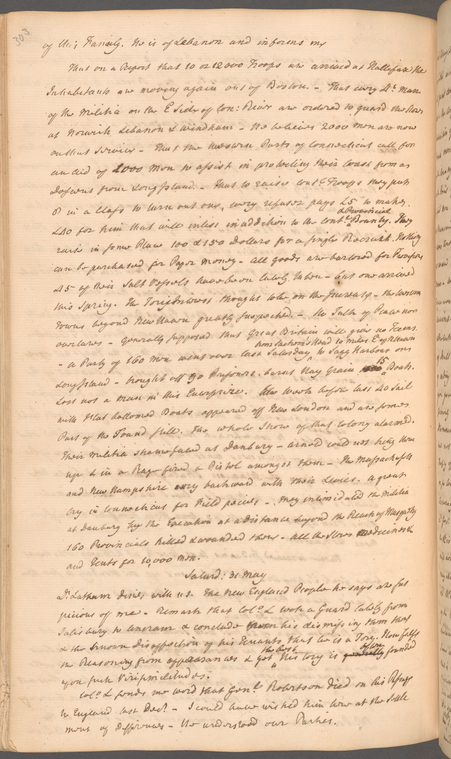 303
of this Family. He is of Lebanon and informs me
That on a Report that 10 or 12000 Troops are arrived at Hallifax the
Inhabitants are moving again out of Boston. - That every 4th Man
of the Militia on the E. Side of Con: River are ordered to guard the Stores
at Norwich Lebanon & Windham - He believes 2000 men are now
on this Service - That the Western Parts of Connecticut call for
an Aid of 2000 Men to assist in protecting their Coast from a
Descent from Long Island - That to raise Contl. Troops they put
8 in a Class to turn out one, every refuser pays £5 to make
£40 for him that will inlist in addition to the Contl. & Provincial Bounty. They
raise in some Places 100 & 150 Dollars for a single Recruit. Nothing
can be purchased for Paper Money - all goods are bartered for
45 of their Salt Vessels have been lately taken - but one arrived
this Spring. The Torys thought to be on the Increase - the western
Towns beyond New Haven greatly suspected - the Talk of Peace now
generally supposed that Great Britain will give no Terms.
- a Party of 160 Men went over last Saturday from Sachem's Head 10 Miles E of N Haven to Sagg Harbour on
Long Island - brought off 90 Prisoners, burnt Hay Grain 15 Boats.
Lost not a man in this Enterprize. Week before last 40 Sail
with Flat bottomed Boats appeared off New London and are in some
Part of the Sound still. The whole Shore of that Colony alarmed.
Their Militia shamefaced at Danbury - Arnold could not bring them
up & in a Rage fired a Pistol amongst them - The Massachusetts
and New Hampshire very backward with their Levies. A great
Cry in Connecticut for Field pieces - They intimidated the Militia
at Danbury by the Execution at a Distance beyond the Reach of Musquetry
160 Provincials killed & wounded there - All the Stores Medicines &
and Tents for 10,000 Men.
Saturd: 31 May
Dr. Latham dines with us. The New England People he says are sus
picious of me. Remark that Col. L wrote a Guard lately from
Salisbury to Ancram & conclude from his dismissing them that
& the known disposition of his Tenants that he is a Tory. How false
the Reasoning from appearances & yet the best History is often founded
upon such Verisimilitudes.
Col. L sends me word that Genl. Robertson died on his Passage
to England last Decr. - I could have wished him here at the Settle
ment of Differences - He understood our Parties.